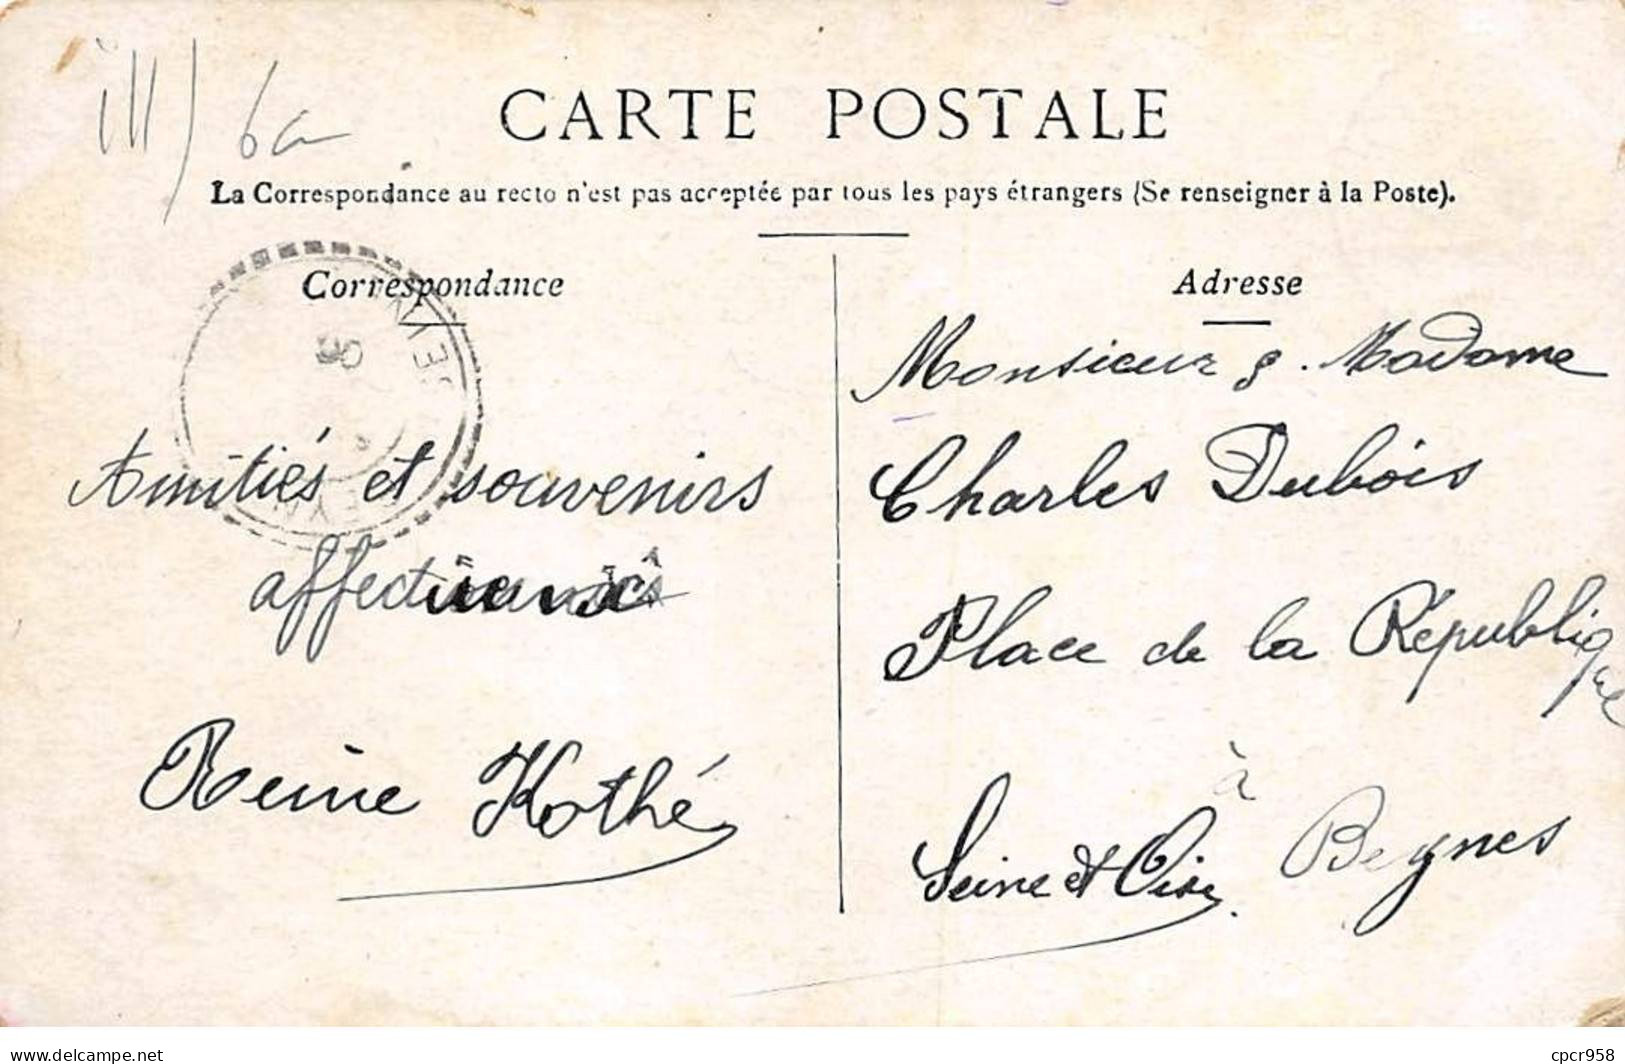 CARTE POSTALE
La Correspondance au recto n'est pas acceptée par tous les pays étrangers (Se renseigner à la Poste).
Correspondance
Amitiés et souvenirs
Reine Kothé
Adresse
Monsieur & Madame
Charles Dubois
Place de la République
à
Seine et Oise. Beynes
delcampe.net
cpcr958